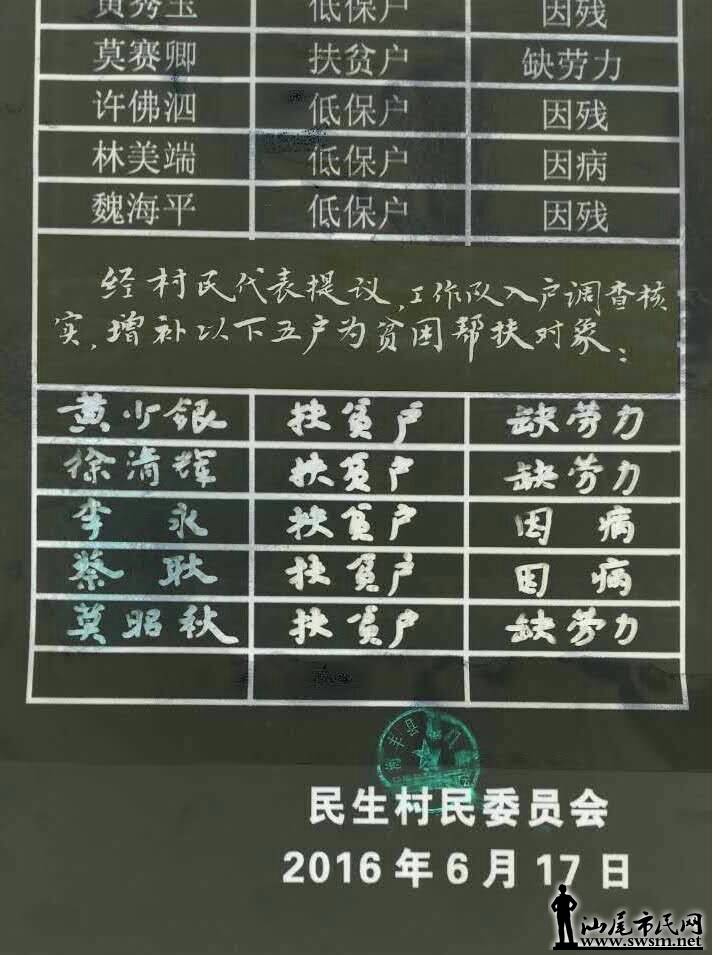 黄秀玉 低保户 因残
莫赛卿 扶贫户 缺劳力
许佛泗 低保户 因残
林美端 低保户 因病
魏海平 低保户 因残
经村民代表提议,工作队入户调查核
实,增补以下五户为贫困帮扶对象:
黄少银 扶贫户 缺劳力
徐清辉 扶贫户 缺劳力
李永 扶贫户 因病
蔡耿 扶贫户 因病
莫昭秋 扶贫户 缺劳力
民生村民委员会
2016年6月17日
汕尾市民网
www.swsm.net